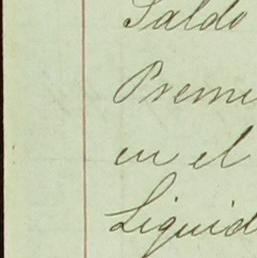 Saldo
Premi
en el
Liquid